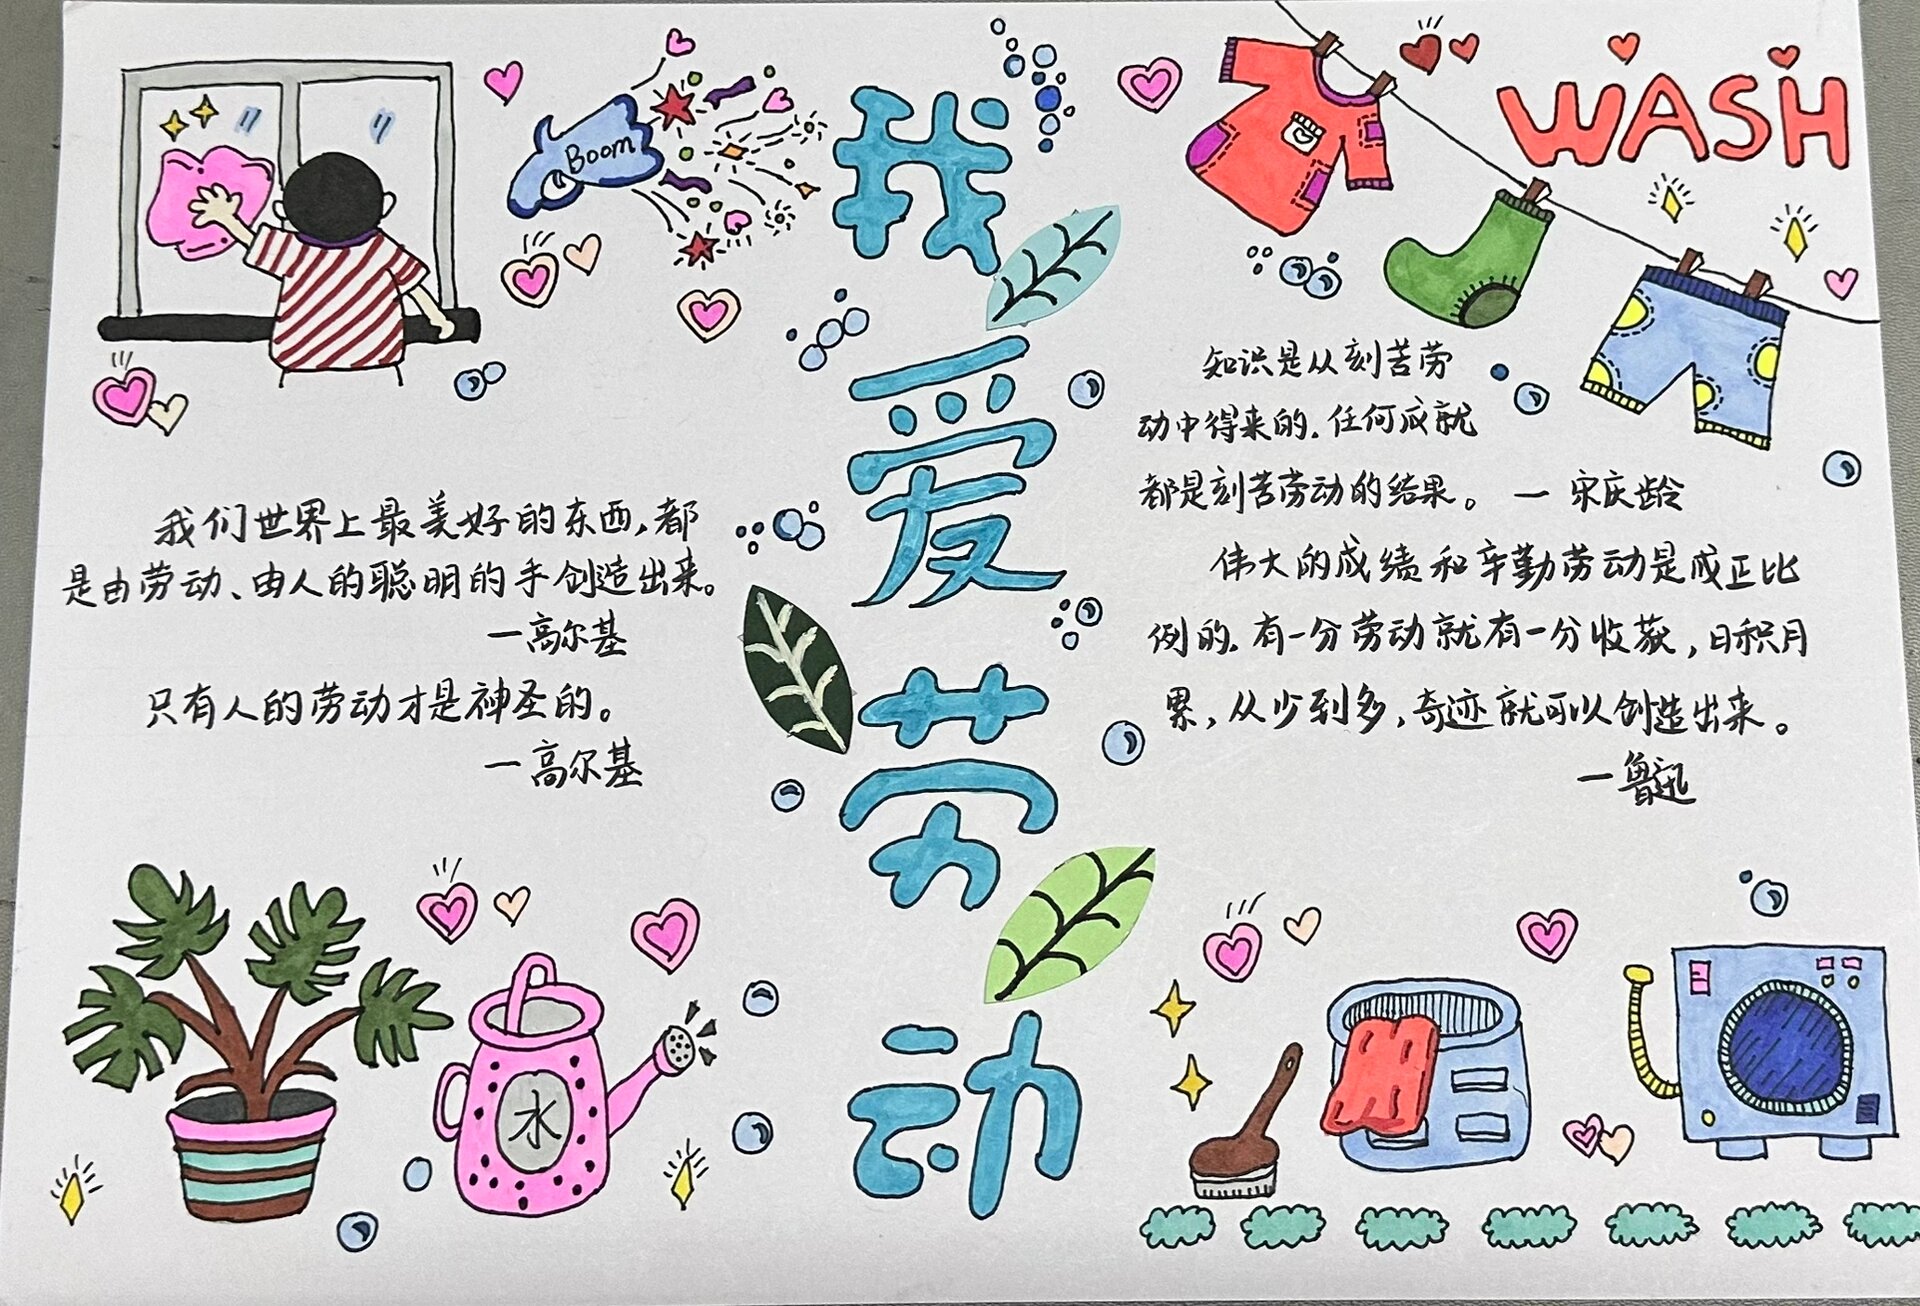 Boom
我爱劳动
WASH
我们世界上最美好的东西,都
是由劳动、由人的聪明的手创造出来。
一高尔基
只有人的劳动才是神圣的。
一高尔基
知识是从刻苦劳
动中得来的.任何成就
都是刻苦劳动的结果。 一 宋庆龄
伟大的成绩和辛勤劳动是成正比
例的.有一分劳动就有一分收获,日积月
累,从少到多,奇迹就可以创造出来。
一鲁迅
水